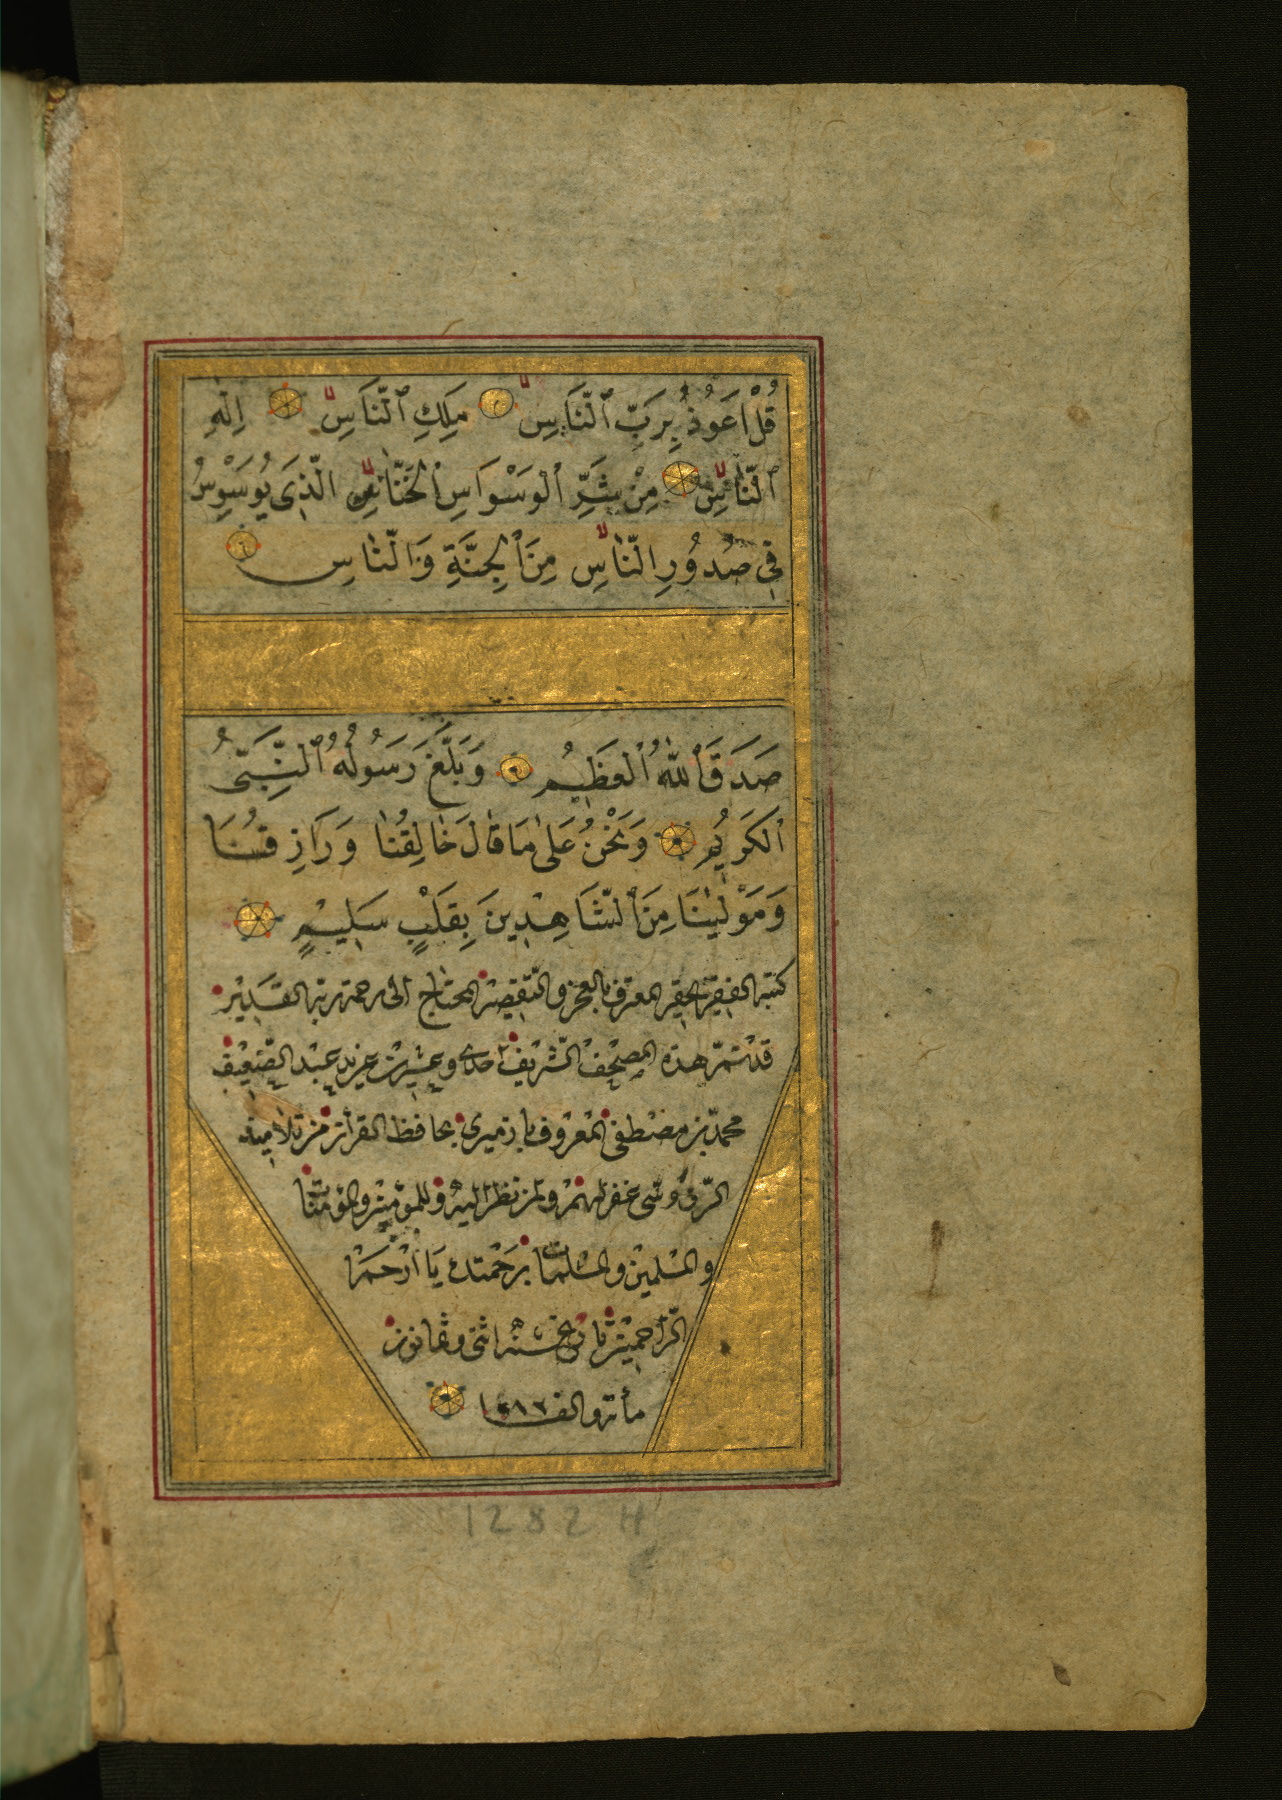 قُلْ اَعُوذُ بِرَبِّ ٱلنَّاسِ مَلِكِ ٱلنَّاسِ اِلٰهِ
ٱلنَّاسِ مِنْ شَرِّ ٱلْوَسْوَاسِ ٱلْخَنَّاسِ الَّذِى يُوَسْوِسُ
فِى صُدُورِ النَّاسِ مِنَ ٱلْجِنَّةِ وَالنَّاسِ
صَدَقَ ٱللّٰهُ ٱلْعَظِيمُ وَبَلَّغَ رَسُولُهُ ٱلنَّبِىُّ
ٱلْكَرِيمُ وَنَحْنُ عَلٰى مَا قَالَ خَالِقُنَا وَرَازِقُنَا
وَمَوْلٰينَا مِنَ ٱلشَّاهِدِينَ بِقَلْبٍ سَلِيمٍ
كتبه الفقير الحقير المعترف بالعجز والتقصير المحتاج الى رحمة ربه القدير
قد تم هذه المصحف الشريف احدى وعشرين عبد الضعيف
محمد بن مصطفى المعروف بازميرى بحافظ القرآن من تلاميذ
غفر لهم ولمن نظر اليه وللمؤمنين والمؤمنات
والمسلمين والمسلمات برحمتك يَا اَرْحَمَ
الراحمين تاريخ سنه اثنى وثمانون
مأتن والف ١٢٨٢
1282 H